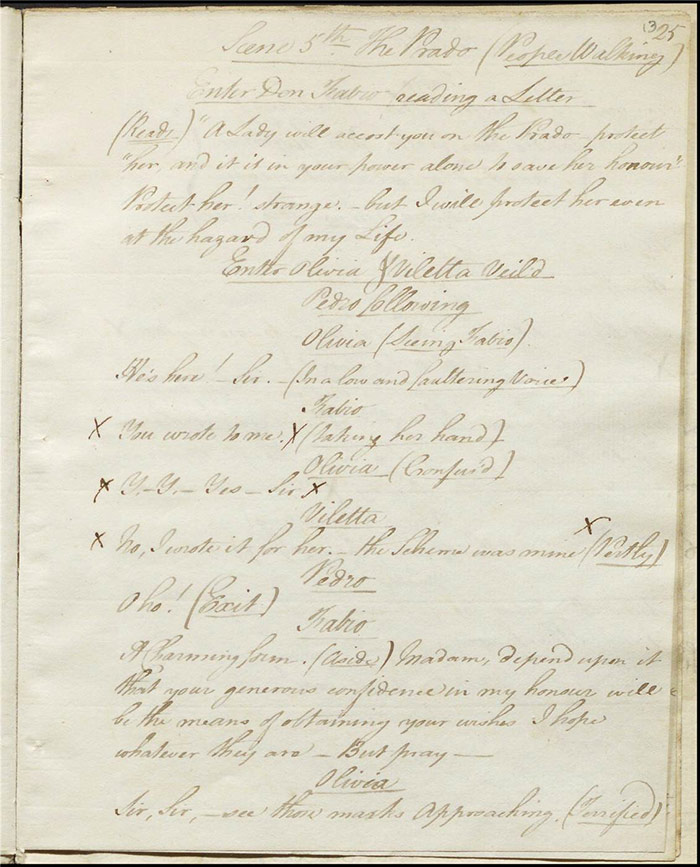 (3) 25
Scene 5th The Prado (People Walking)
Enter Don Fabio reading a Letter
(Reads) "A Lady will accost you on the Prado protect
"her, and it is in your power alone to save her honour"
Protect her! strange. - but I will protect her even
at the hazard of my Life.
Enter Olivia & Viletta Veild
Pedro following
Olivia (Seeing Fabio)
He's here! - Sir. - (In a low and faultering Voice)
Fabio
X You wrote to me. X (taking her hand)
Olivia (Confus'd)
X Y.-Y.- Yes - Sir X
Viletta
X No, I wrote it for her. - the Scheme was mine X (Pertly)
Pedro
O ho! (Exit)
Fabio
A Charming form. (Aside) Madam, depend upon it
that your generous confidence in my honour will
be the means of obtaining your wishes I hope
whatever they are - But pray -
Olivia
Sir, Sir, - see those masks Approaching. (Terrified)